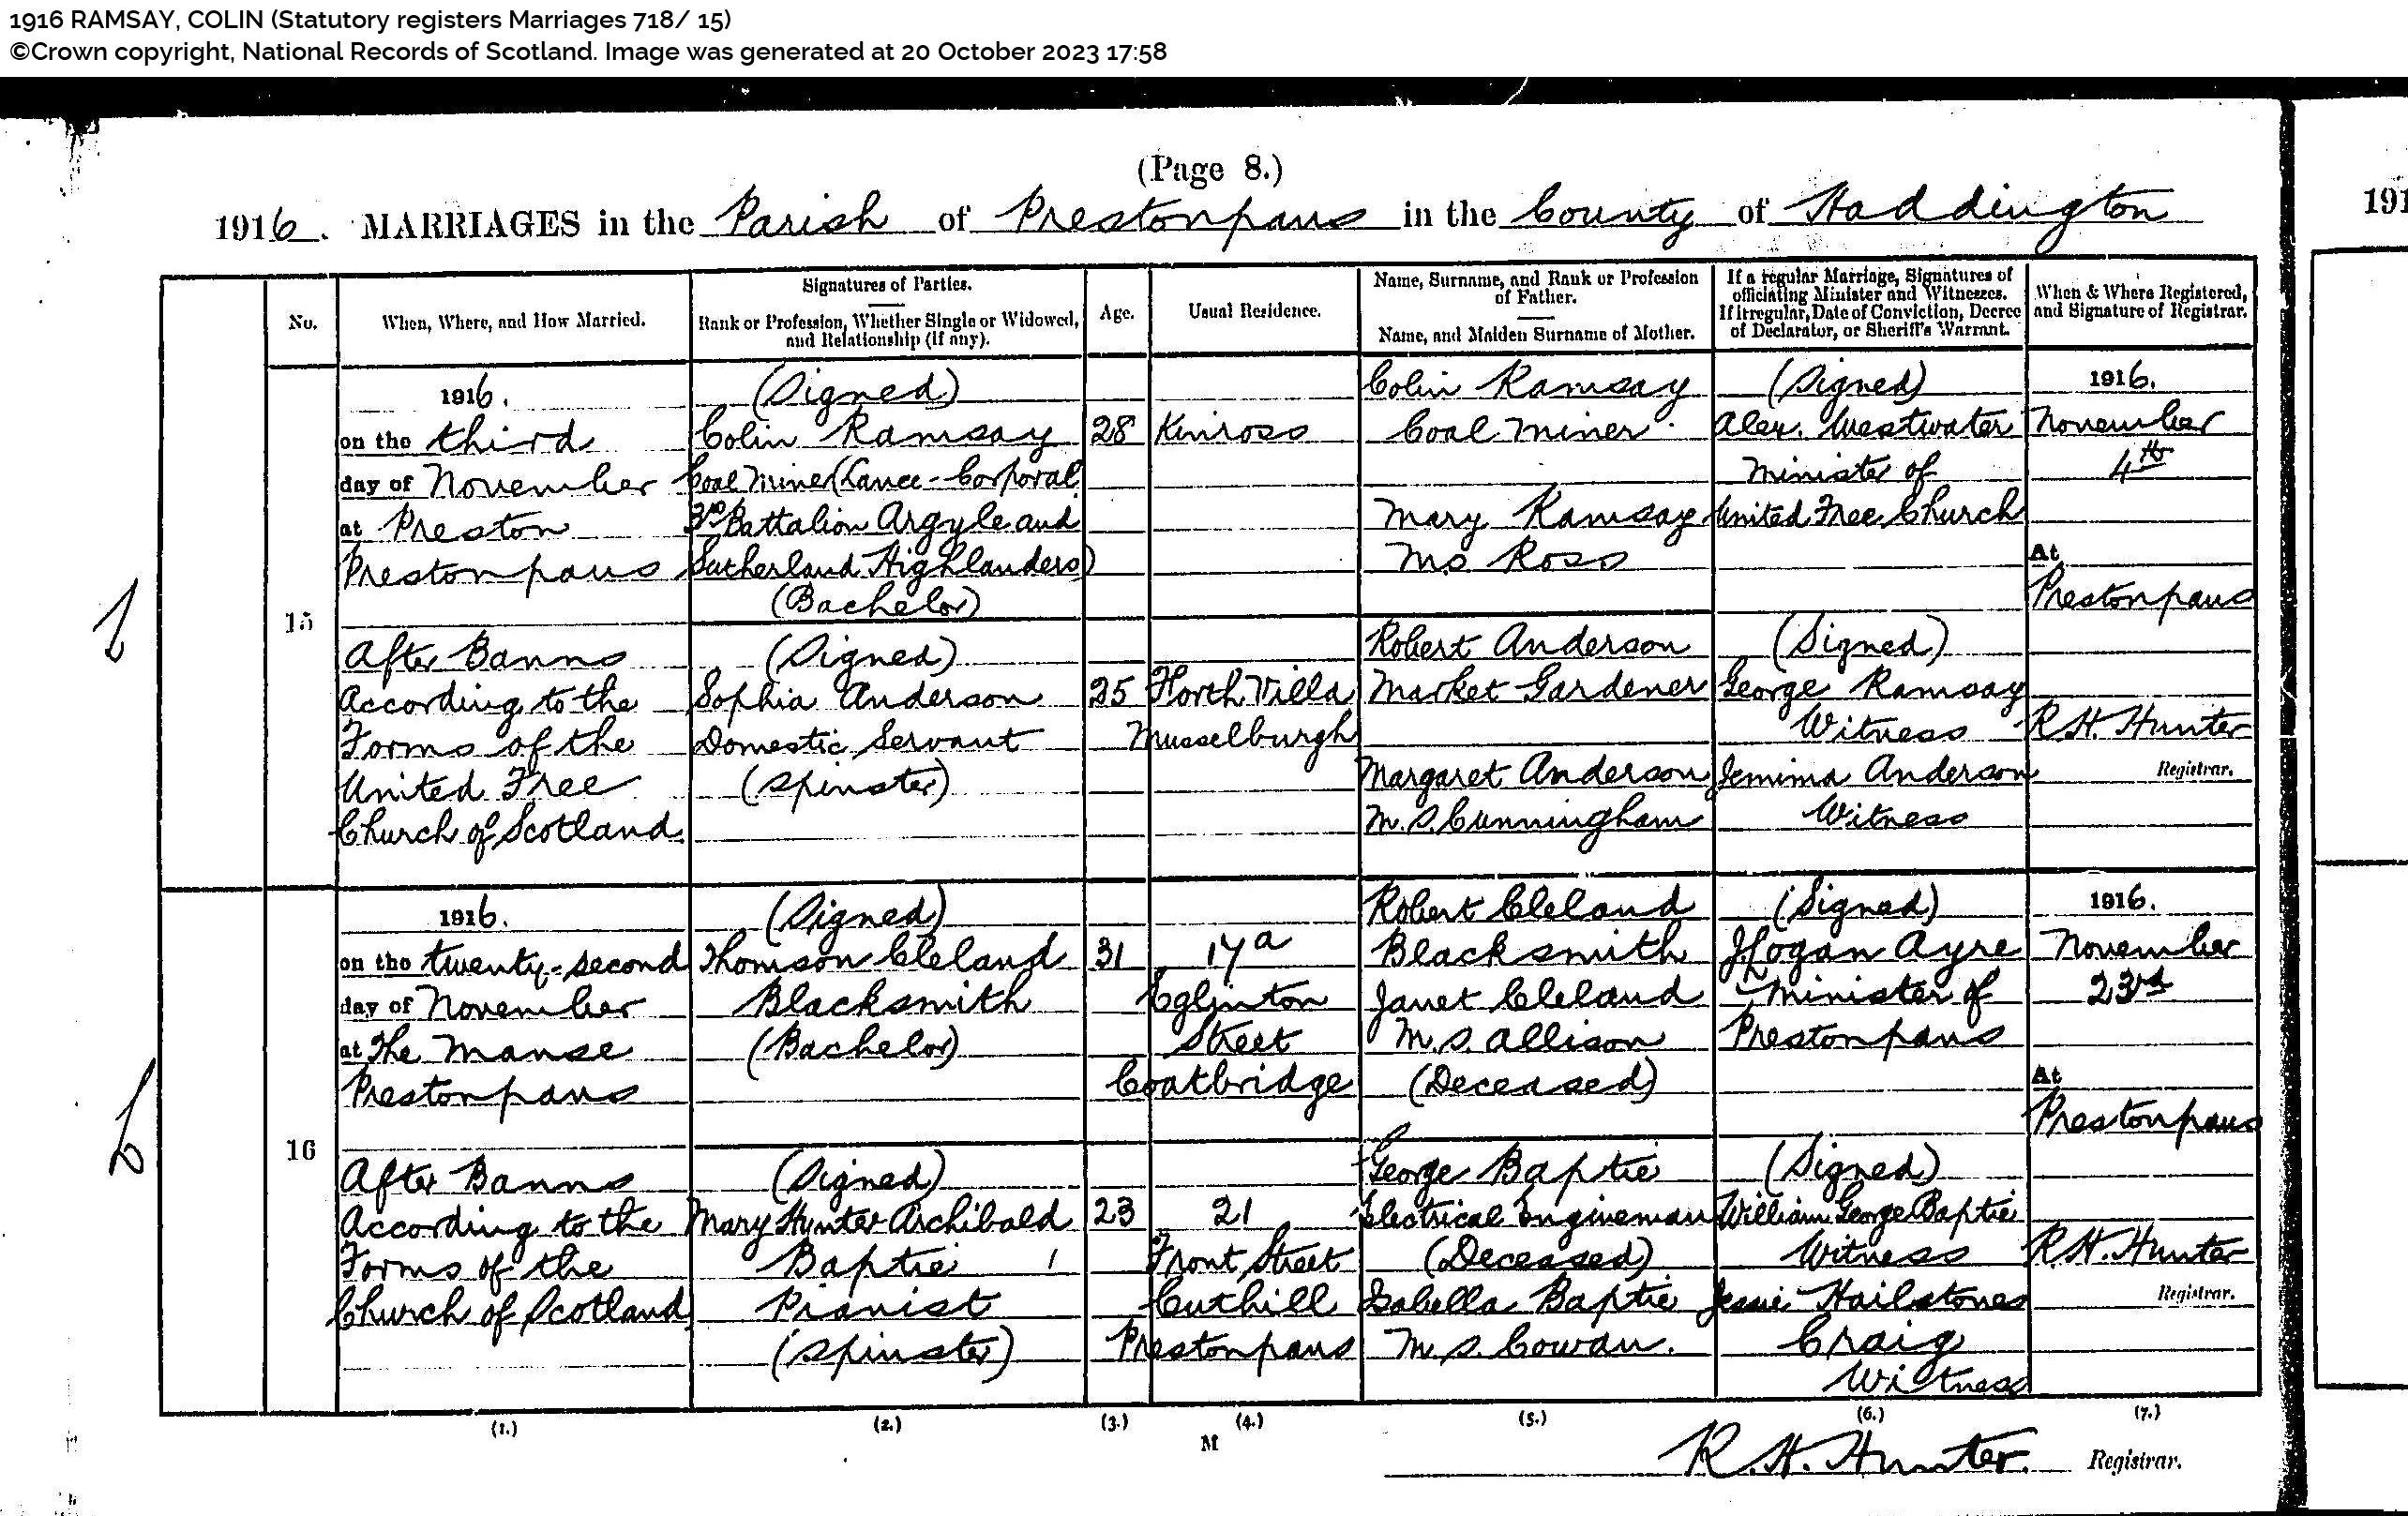 1916 RAMSAY, COLIN (Statutory registers Marriages 718/ 15)
©Crown copyright, National Records of Scotland. Image was generated at 20 October 2023 17:58
(Page 8.)
1916. MARRIAGES in the Parish of Prestonpans in the County of Haddington
191
No.
When, Where, and How Married.
Signatures of Parties.
Rank or Profession, Whether Single or Widowed,
and Relationship (if any).
Age.
Usual Residence.
Name, Surname, and Rank or Profession
of Father.
Name, and Maiden Surname of Mother.
If a regular Marriage, Signatures of
officiating Minister and Witnesses.
If irregular, Date of Conviction, Decree
of Declarator, or Sheriff's Warrant.
When & Where Registered,
and Signature of Registrar.
15
1916.
on the third
day of November
at Preston
Prestonpans
After Banns
According to the
Forms of the
United Free
Church of Scotland
(Signed)
Colin Ramsay
Coal Miner (Lance-Corporal
3rd Battalion Argyle and
Sutherland Highlanders)
(Bachelor)
(Signed)
Sophia Anderson
Domestic Servant
(Spinster)
28
25
Kinross
Forth Villa
Musselburgh
Colin Ramsay
Coal Miner
Mary Ramsay
M.S. Ross
Robert Anderson
Market Gardener
Margaret Anderson
M.S. Cunningham
(Signed)
Alex. Westwater
Minister of
United Free Church
(Signed)
George Ramsay
Witness
Jemima Anderson
Witness
1916.
November
4th
At
Prestonpans
R.H. Hunter
Registrar.
16
1916.
on the twenty-second
day of November
at The Manse
Prestonpans
After Banns
According to the
Forms of the
Church of Scotland
(Signed)
Thomson Cleland
Blacksmith
(Bachelor)
(Signed)
Mary Hunter Archibald
Baptie
Pianist
(Spinster)
31
23
17a
Eglinton
Street
Coatbridge
21
Front Street
Cuthill
Prestonpans
Robert Cleland
Blacksmith
Janet Cleland
M.S. Allison
(Deceased)
George Baptie
Electrical Engineman
(Deceased)
Isabella Baptie
M.S. Cowan.
(Signed)
J. Logan Ayre
Minister of
Prestonpans
(Signed)
William George Baptie
Witness
Jessie Hailstones
Craig
Witness
1916.
November
23rd
At
Prestonpans
R.H. Hunter
Registrar.
(1.) (2.) (3.) (4.) (5.) (6.) (7.)
M
R.H. Hunter. Registrar.